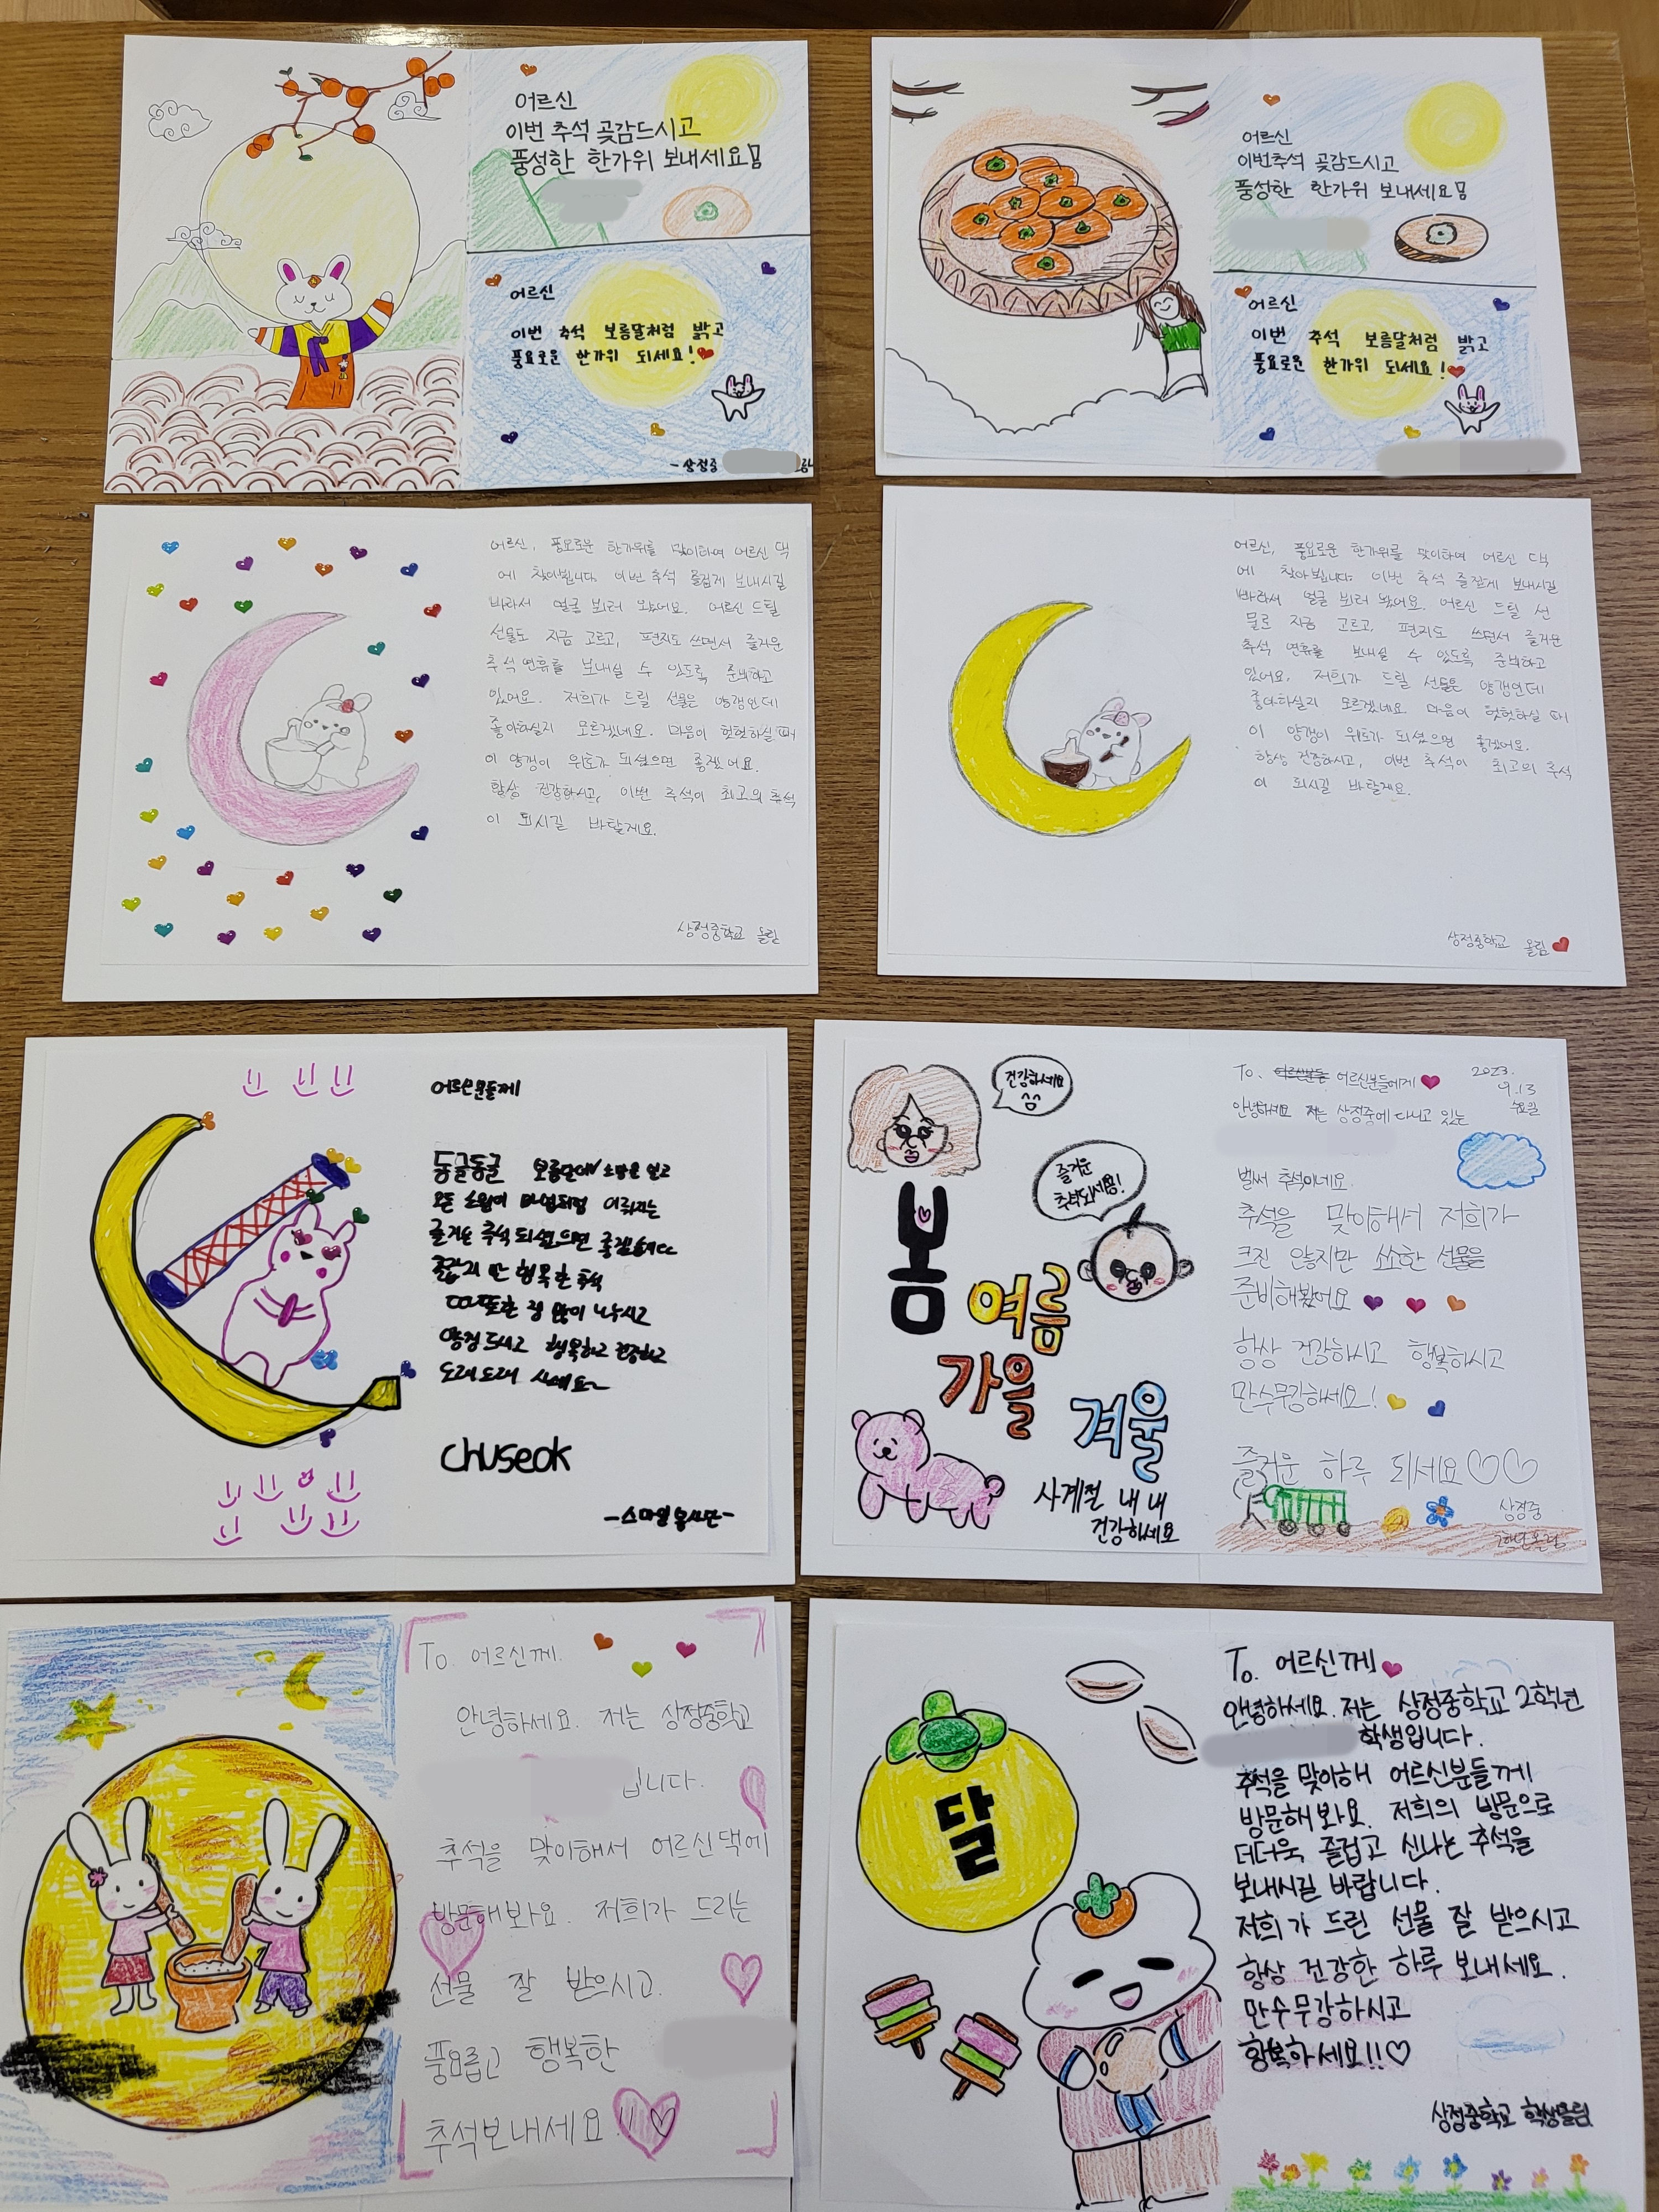 어르신
이번 추석 곶감드시고
풍성한 한가위 보내세요
어르신
이번 추석 보름달처럼 밝고
풍요로운 한가위 되세요!
-상정중
어르신
이번추석 곶감드시고
풍성한 한가위 보내세요
어르신
이번 추석 보름달처럼 밝고
풍요로운 한가위 되세요!
어르신, 풍요로운 한가위를 맞이하여 어르신 댁
에 찾아뵙니다. 이번 추석 즐겁게 보내시길
바라서 얼굴 뵈러 왔어요. 어르신 드릴
선물도 지금 고르고, 편지도 쓰면서 즐거운
추석 연휴를 보내실 수 있도록 준비하고
있어요. 저희가 드릴 선물은 양갱인데
좋아하실지 모르겠네요. 마음이 헛헛하실 때
이 양갱이 위로가 되셨으면 좋겠어요.
항상 건강하시고, 이번 추석이 최고의 추석
이 되시길 바랄게요.
상정중학교 올림
어르신, 풍요로운 한가위를 맞이하여 어르신 댁
에 찾아뵙니다. 이번 추석 즐겁게 보내시길
바라서 얼굴 뵈러 왔어요. 어르신 드릴 선
물도 지금 고르고, 편지도 쓰면서 즐거운
추석 연휴를 보내실 수 있도록 준비하고
있어요. 저희가 드릴 선물은 양갱인데
좋아하실지 모르겠네요 마음이 헛헛하실 때
이 양갱이 위로가 되셨으면 좋겠어요.
항상 건강하시고, 이번 추석이 최고의 추석
이 되시길 바랄게요.
상정중학교 올림
어르신분들께
둥글둥글 보름달에 소망을 싣고
모든 소원이 마법처럼 이뤄지는
즐거운 추석 되셨으면 좋겠습니다
즐겁지만 행복한 추석
또한 정 많이 나누시고
양갱 드시고 행복하고 건강하고
오래오래 사세요~
chuseok
-스마일 봉사단-
건강하세요
즐거운
추석되세용!
봄
여름
가을
겨울
사계절 내내
건강하세요
To. 어르신분들에게
2023.
9.13
수요일
안녕하세요 저는 상정중에 다니고 있는
벌써 추석이네요.
추석을 맞이해서 저희가
크진 않지만 소소한 선물을
준비해봤어요
항상 건강하시고 행복하시고
만수무강하세요!
즐거운 하루 되세요♡♡
상정중
2학년 올림
To. 어르신께.
안녕하세요. 저는 상정중학교
입니다.
추석을 맞이해서 어르신댁에
방문해봐요. 저희가 드리는
선물 잘 받으시고.
풍요롭고 행복한
추석보내세요!!♡
달
To. 어르신께
안녕하세요. 저는 상정중학교 2학년
학생입니다.
추석을 맞아해 어르신분들께
방문해봐요. 저희의 방문으로
더더욱 즐겁고 신나는 추석을
보내시길 바랍니다.
저희가 드린 선물 잘 받으시고
항상 건강한 하루 보내세요.
만수무강하시고
행복하세요!!♡
상정중학교 학생올림